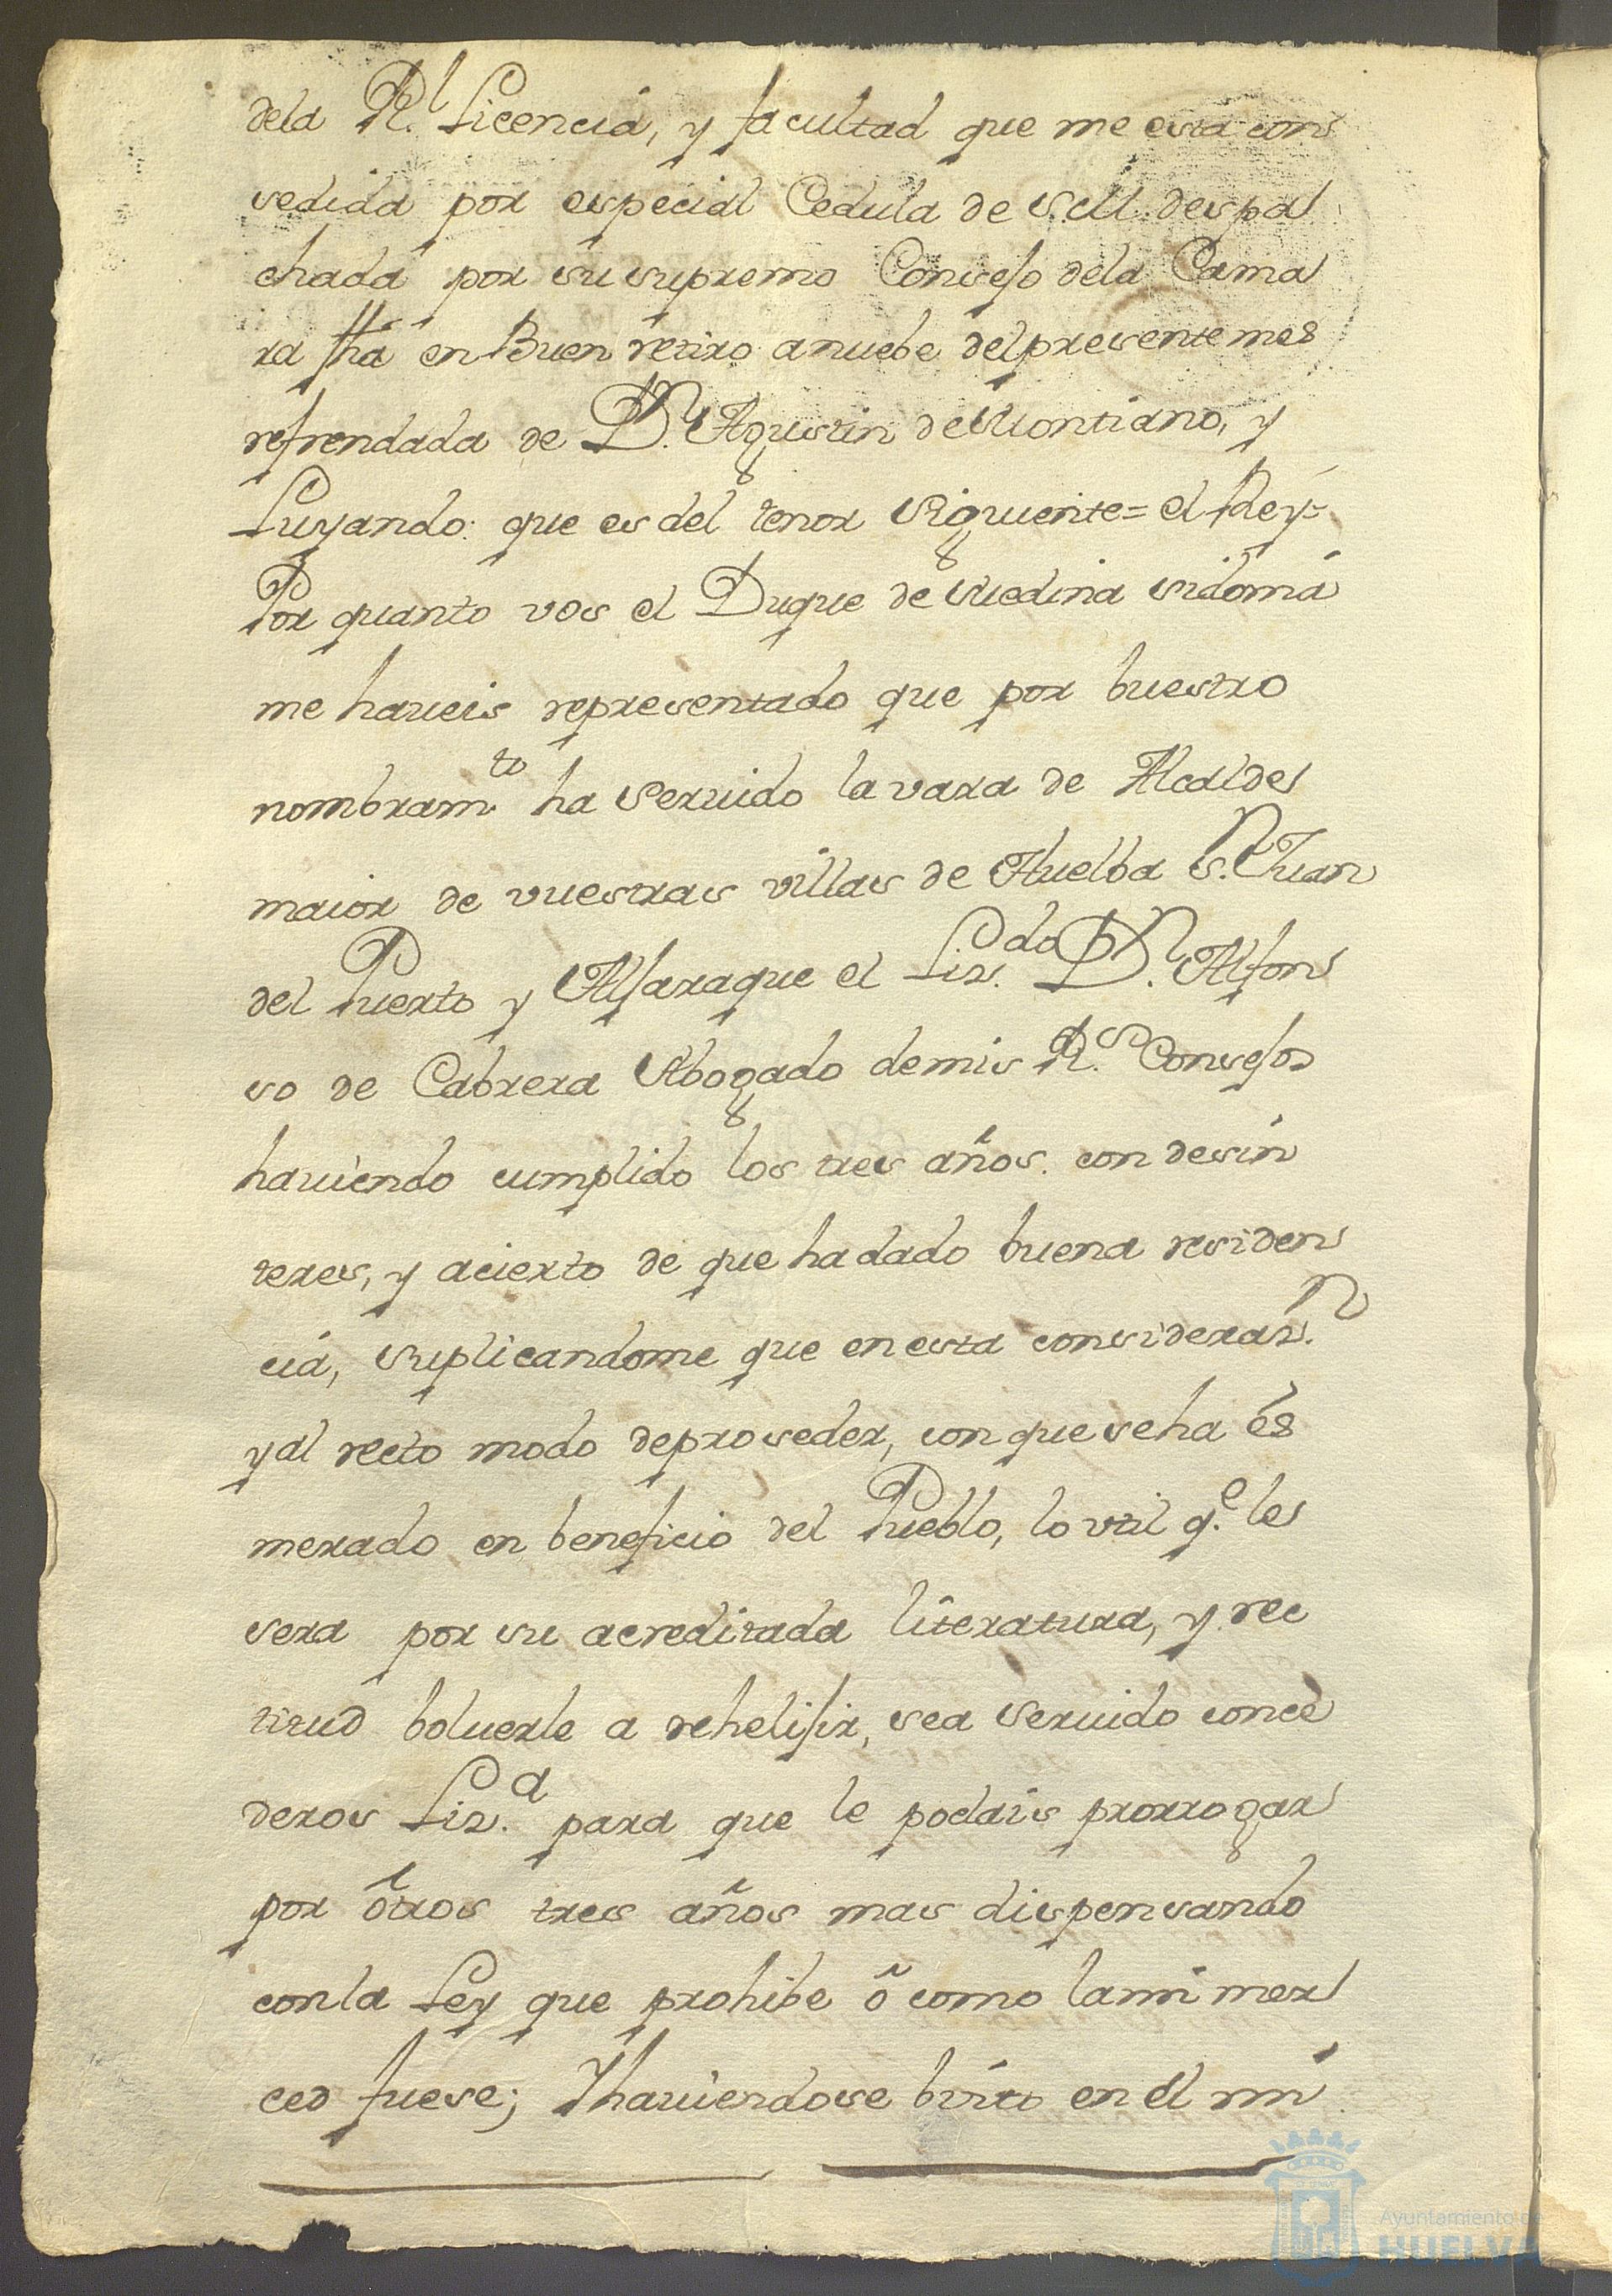 dela Rl. Licencia, y facultad que me esta con
sedida por especial Cedula de S.M. despa
chada por su supremo Consejo dela Cama
ra fha en Buen retiro a nuebe del presente mes
refrendada de Dn. Agustin de Montiano, y
Luyando: que es del tenor siguiente = el Rey =
Por quanto vos el Duque de Medina sidonia
me haveis representado que por buestro
nombramto. ha servido la vara de Alcalde
maior de vuestras villas de Huelba Sn. Juan
del Puerto y Alfaraque el Lizdo. Dn. Alfon
so de Cabrera Abogado de mis Rs. Consejos
haviendo cumplido los tres años con desin
teres, y acierto de que ha dado buena residen
cia, suplicandome que en esta considerazn.
y al recto modo de proseder, con que se ha es
merado en beneficio del Pueblo, lo util qe. les
sera por su acreditada literatura, y rec
titud bolverle a rehelijir, sea servido conce
deros Liza. para que le podais prorrogar
por otros tres años mas dispensando
con la Ley que prohibe o como la mi mer
ced fuese; Y haviendose bisto en el mi
Ayuntamiento de
HUELVA